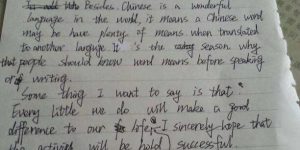 Besides, Chinese is a wonderful
language in the world, it means a Chinese word
may be have plenty of means when translated
to another languge. It is the season why
that people should know word means before speaking
or writing.
Some thing I want to say is that
Every little we do will make a good
difference to our life, I sincerely hope that
the activity will be hold successful.